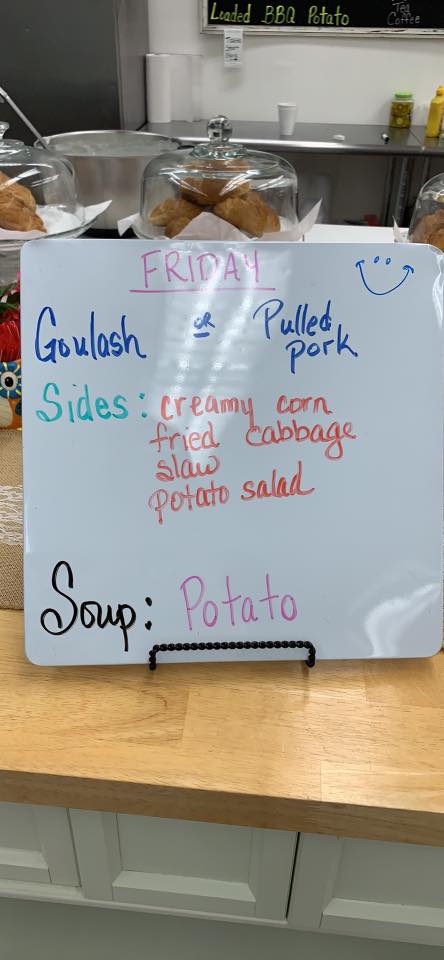 Loaded BBQ Potato
Tea
Coffee
FRIDAY
Goulash OR Pulled pork
Sides: creamy corn
fried cabbage
slaw
potato salad
Soup: Potato